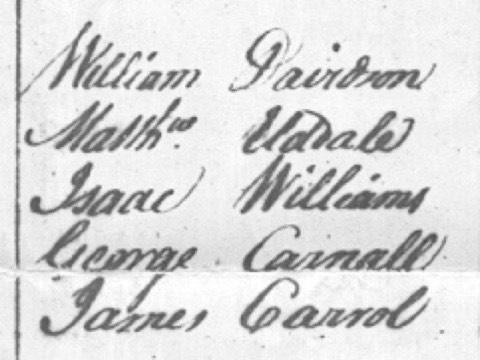 William Davidson
Matthw. Uddale
Isaac Williams
George Carnall
James Carrol